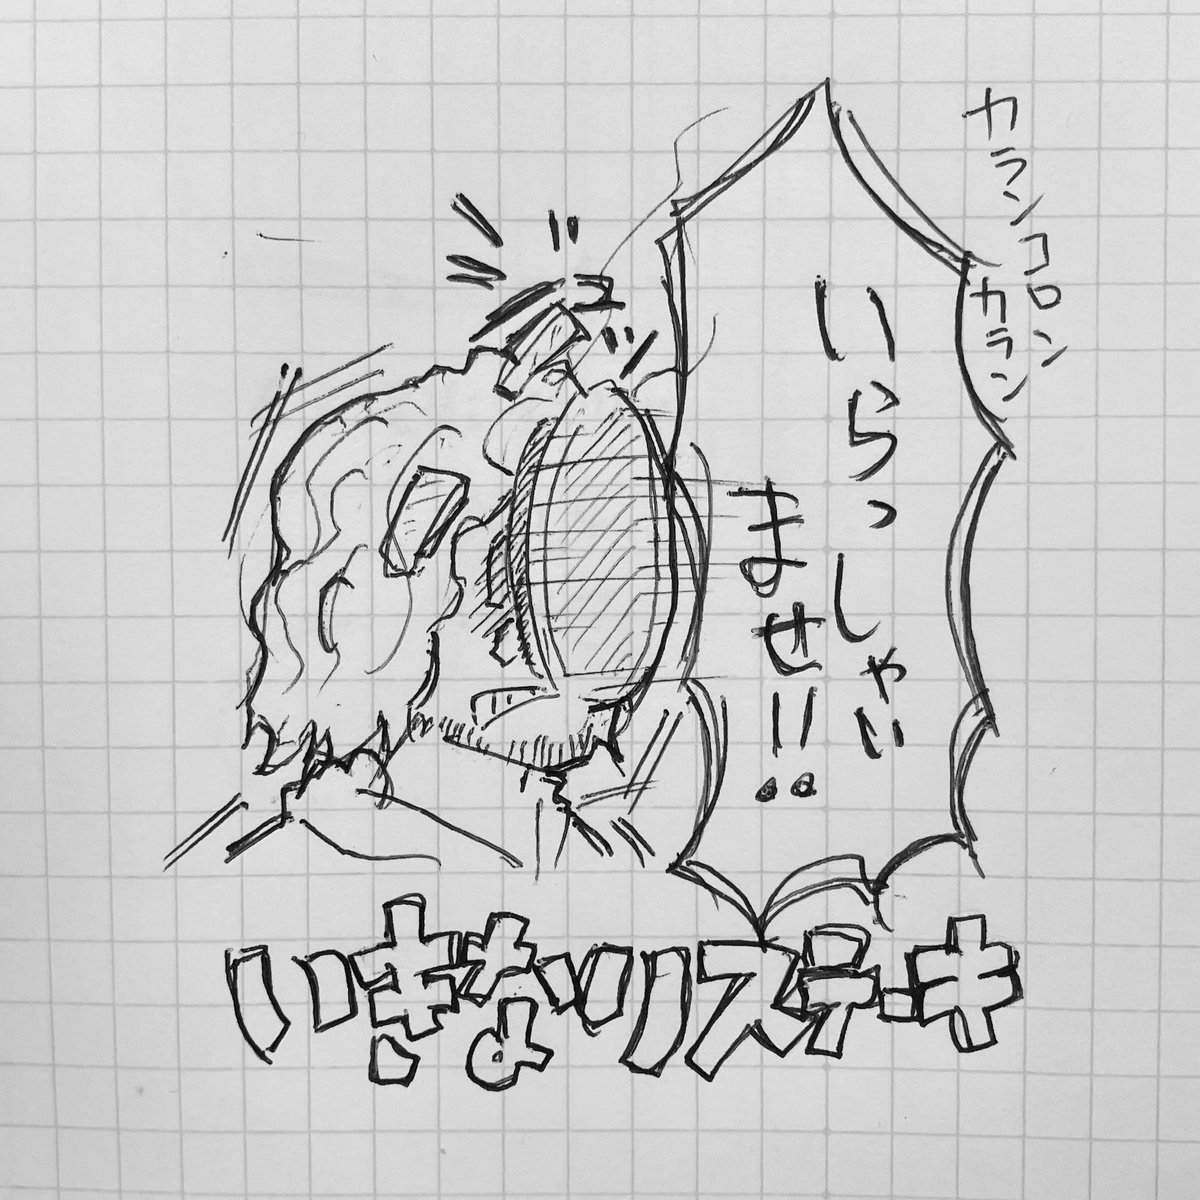 カランコロン
カラン
いらっしゃい
ませ!!
いきなりステーキ